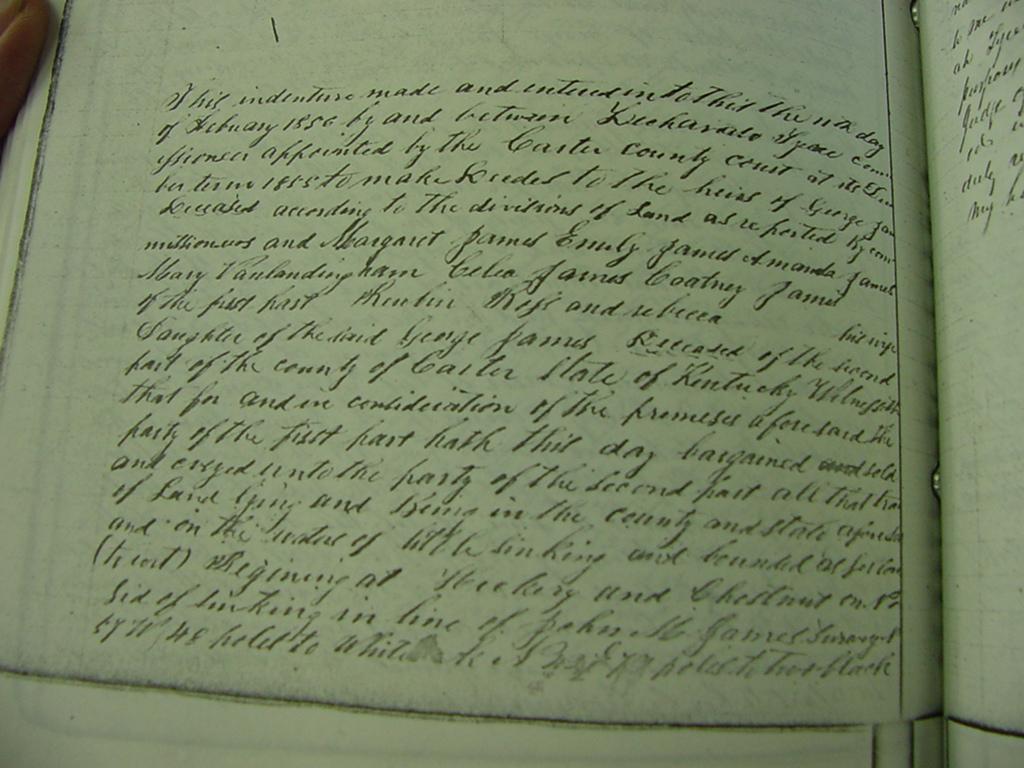 This indenture made and entered into this the 11th day
of Febuary 1856 by and between Tyree com
issioner appointed by the Carter county court at its
ber term 1855 to make Deedes to the heirs of George Jam
Deceased according to the divisions of Land as reported by com
millioners and Margaret James Emily James Amanda James
Mary Vanlandingham Celea James Coatney James
of the first part Reubin Ross and rebecca his wife
Daughter of the said George James Deceased of the second
part of the county of Carter State of Kentucky Witnesseth
that for and in consideration of the premises aforesaid the
party of the first part hath this day bargained and sold
and unto the party of the second part all that trac
of Land lying and Being in the county and state aforesa
and on the waters of little sinking and bounded as
(to wit) Begining at Hickory and Chestnut on
sid of sinking in line of John M James
57 W 48 poles to White poles to two black
to me
at Tyree
purpose
Judge
duly
my